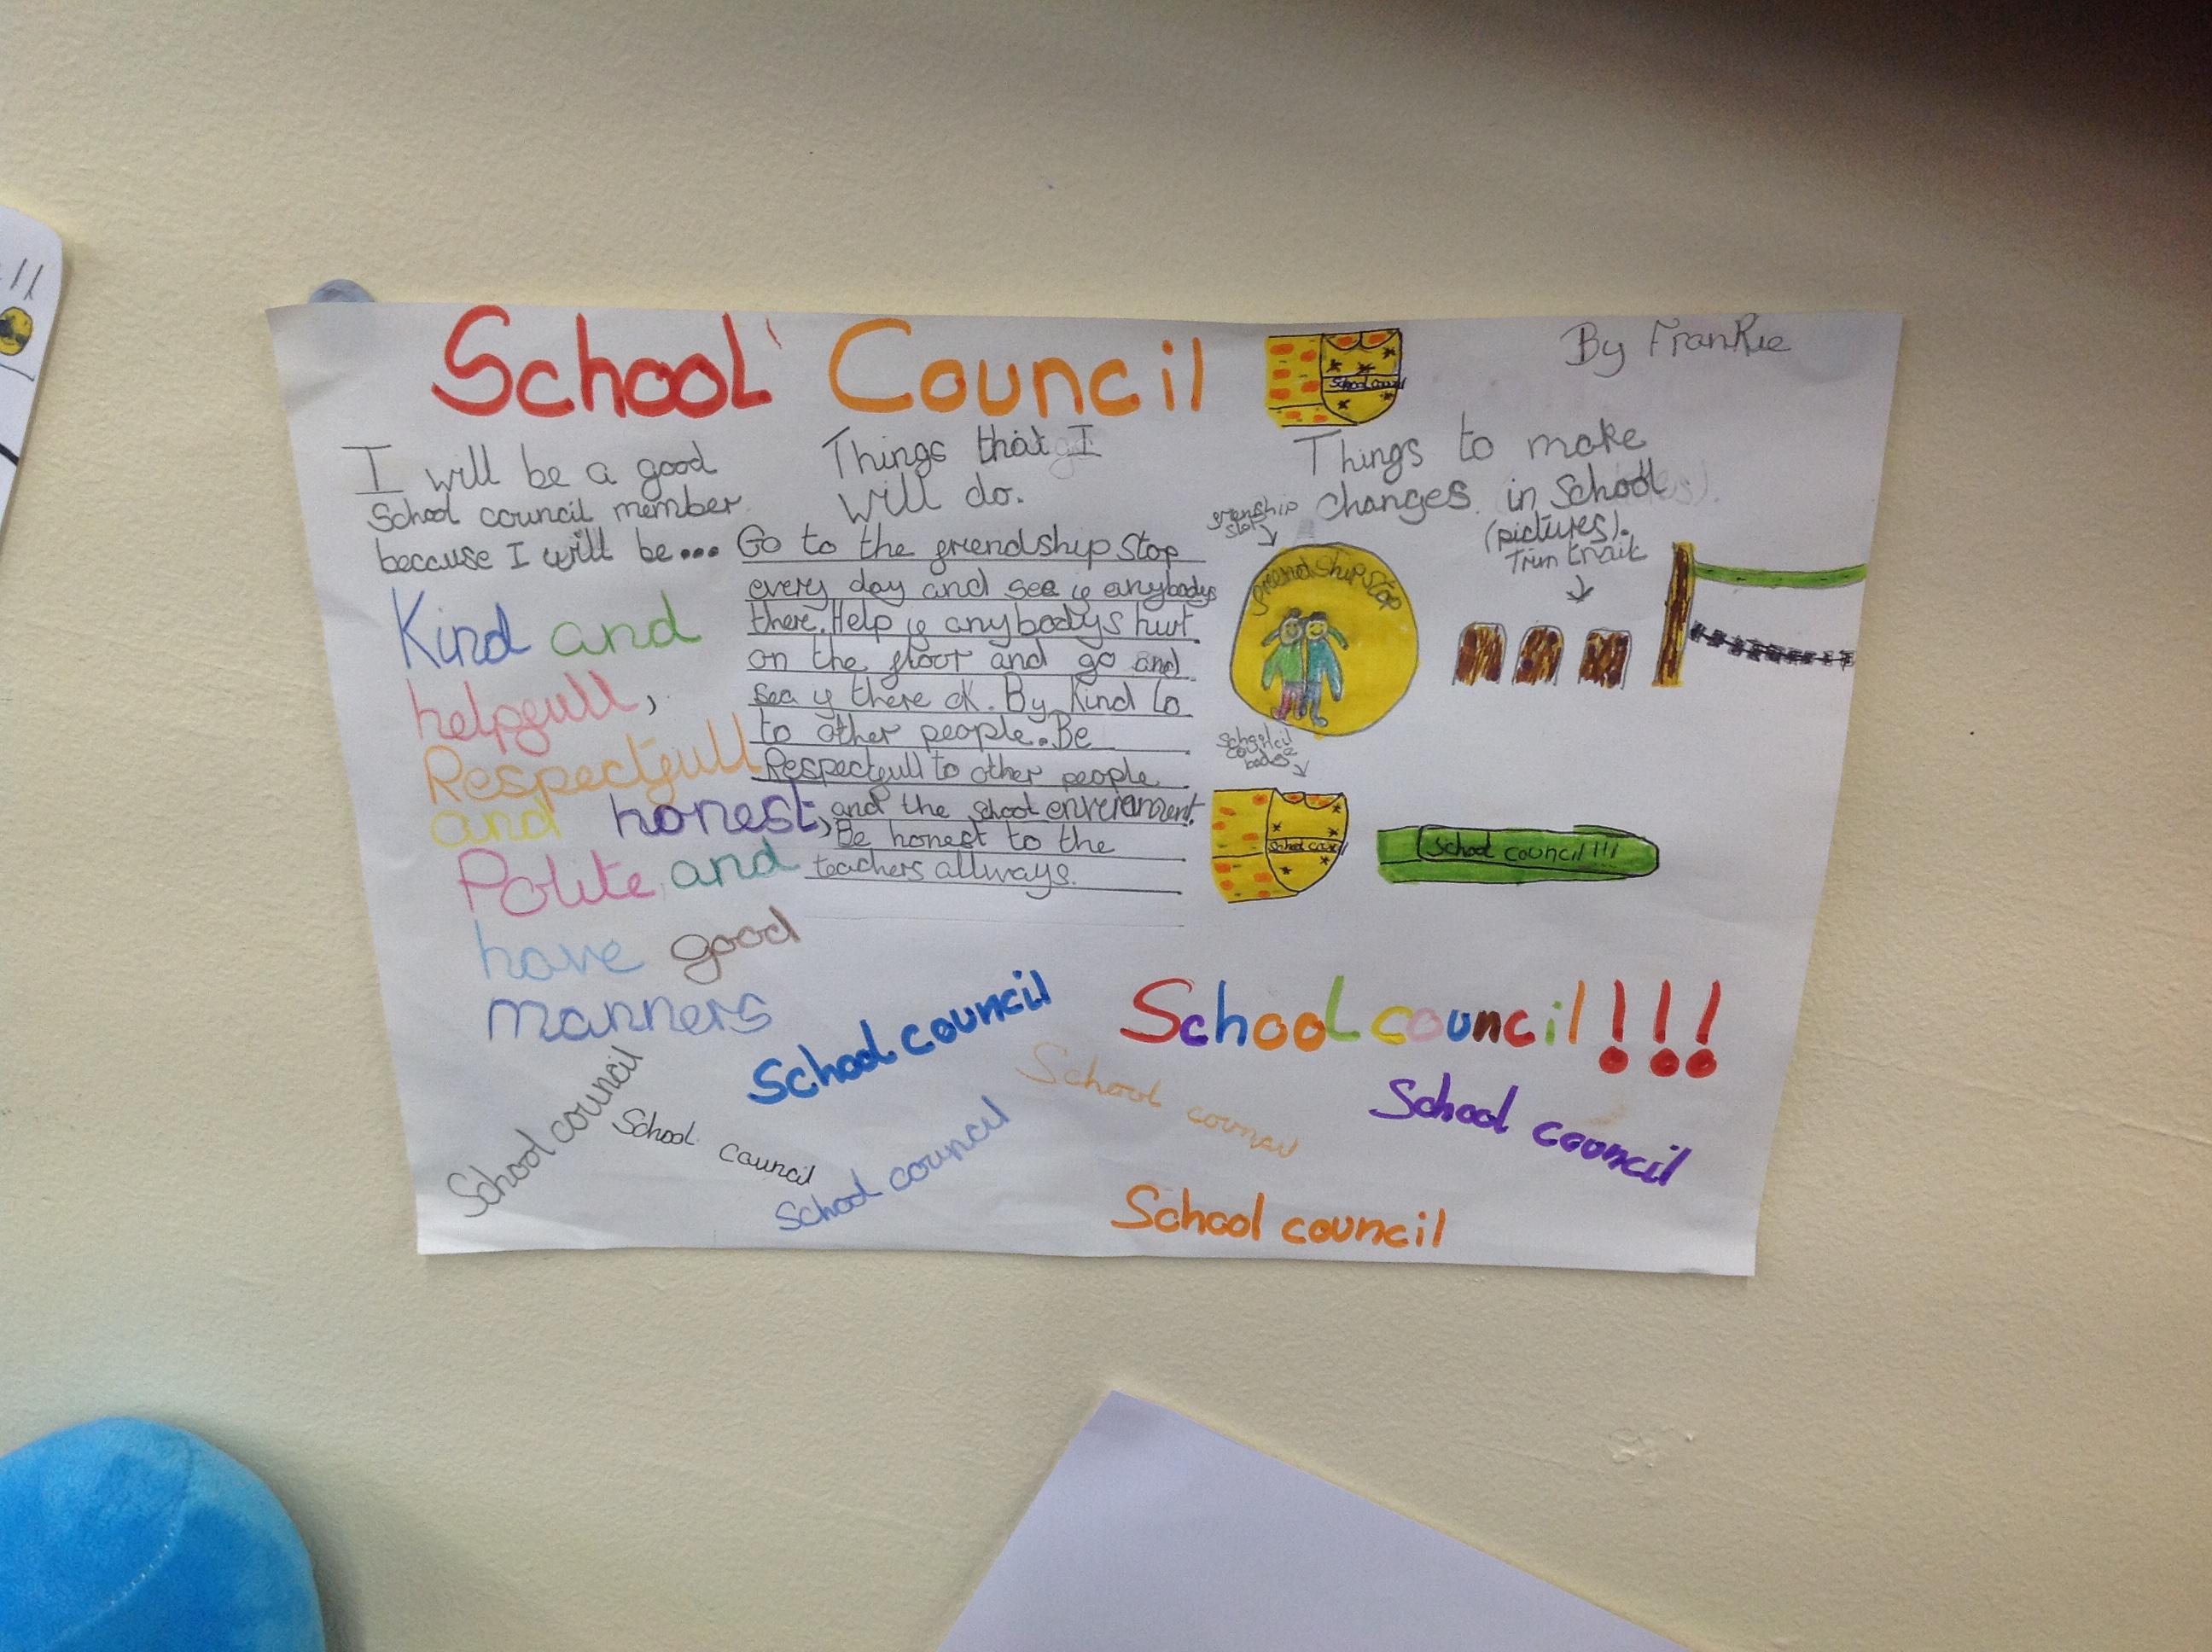 School Council
By Frankie
School council
I will be a good
School council member
because I will be...
Kind and
helpfull,
Respectfull
and honest,
Polite and
have good
manners
Things that I
will do.
Go to the friendship Stop
every day and see if anybodys
there. Help if anybodys hurt
on the floor and go and
sea if there ok. By Kind to
to other people. Be
Respectfull to other people
and the school enveiroment.
Be honest to the
teachers allways.
Things to make
changes in School
(pictures).
frenship
stop
friendship stop
Trim trail
School
council
School council
School council!!!
School council!!!
School council
School council
School council
School council
School council
School council
School council